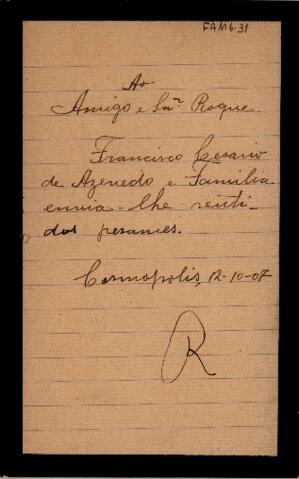 FAM6.31
Ao
Amigo e Snr. Roque.
Francisco Cesario
de Azevedo e Familia
envia-lhe senti-
dos pesames.
Cosmopolis, 12-10-07
R